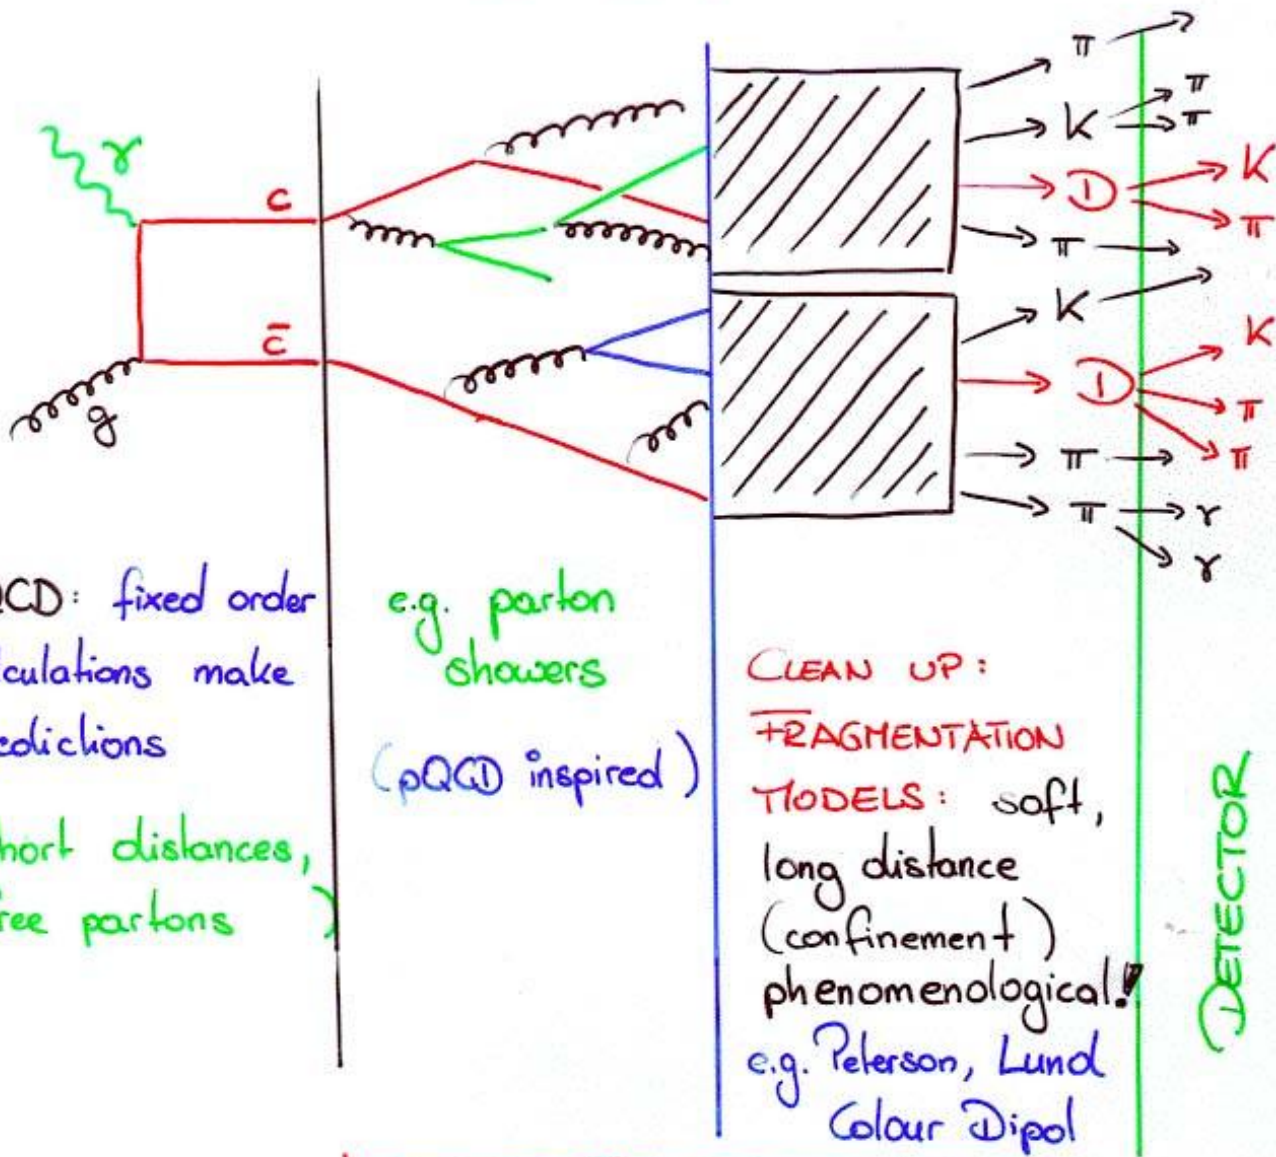 γ
c
c̄
g
π
π
K
π
D
K
π
π
K
K
D
π
π
π
π
γ
γ
QCD: fixed order
lculations make
edictions
hort distances,
ree partons )
e.g. parton
showers
(pQCD inspired)
CLEAN UP:
FRAGMENTATION
MODELS: soft,
long distance
(confinement)
phenomenological!
e.g. Peterson, Lund
Colour Dipol
DETECTOR